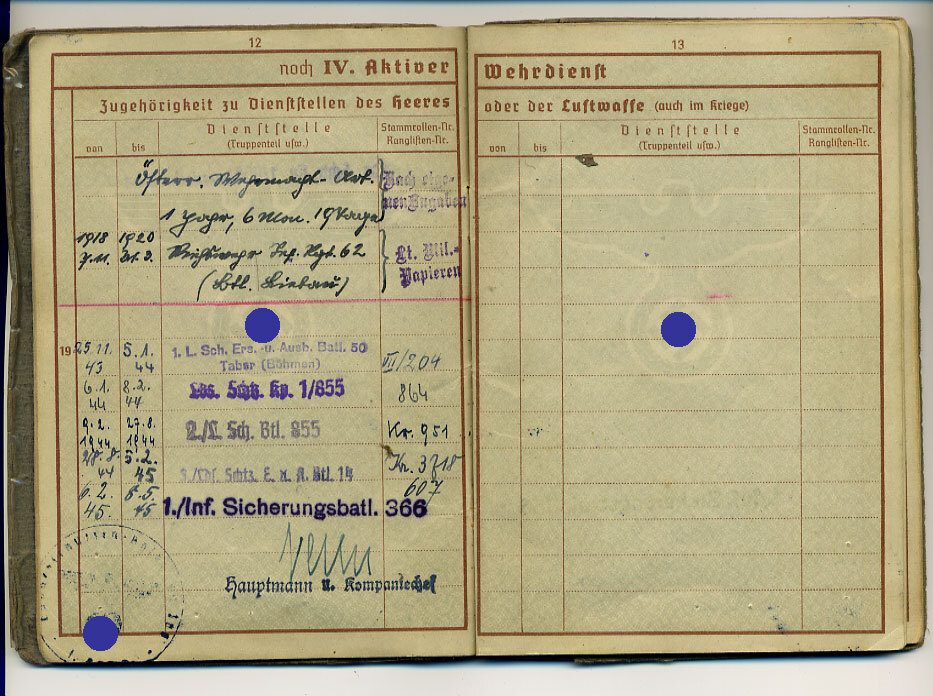 12
noch IV. Aktiver
Zugehörigkeit zu Dienststellen des Heeres
von
bis
Dienststelle
(Truppenteil usw.)
Stammrollen-Nr.
Ranglisten-Nr.
Österr. Wehrmacht - Art.
Nach eige-
nen Angaben
1 Jahr, 6 Mon. 19 Tage
1918 1920
Inf. Rgt. 62
Lt. Mil.-
Papieren
(Btl. Liebau)
1925.11. 5.1. 1. L. Sch. Ers.- u. Ausb. Batl. 50
43 44 Tabor (Böhmen)
VII/204
6.1. 8.2. Lds. Schtz. Kp. 1/855 864
44 44
9.2. 27.8. 2./L. Sch. Btl. 855 Kr. 951
1944 1944
28.8. 5.2. Kr. 3718
44 45 3./Ldf. Schtz. E. u. A. Btl. 14
6.2. 8.5. 607
45. 45 1./Inf. Sicherungsbatl. 366
Hauptmann u. Kompaniechef
13
Wehrdienst
oder der Luftwaffe (auch im Kriege)
von
bis
Dienststelle
(Truppenteil usw.)
Stammrollen-Nr.
Ranglisten-Nr.